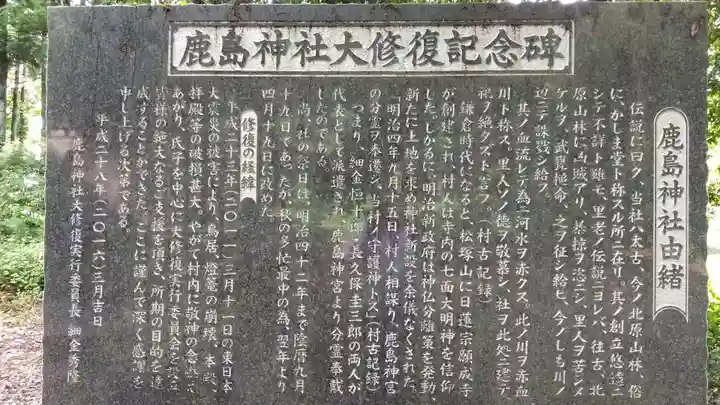 鹿島神社大修復記念碑
鹿島神社由緒
伝説に曰ク、当社ハ太古、今ノ北原山林、俗
に、かしま堂ト称スル所ニ在リ。其ノ創立悠遠ニ
シテ不詳ト雖モ、里老ノ伝説ニヨレバ、往古、北
原山林に凶賊アリ、暴掠ヲ恣ニシ、里人ヲ苦シメ
ケルヲ、武甕槌命、之ヲ征シ給ヒ、今ノしも川ノ
辺ニテ誅戮シ給フ。
其ノ血流レテ為ニ河水ヲ赤クス、此ノ川ヲ赤血
川ト称ス、里人ソノ徳ヲ敬慕シ、社ヲ此処ニ建テ
祀ヲ絶タズト言フ。(村古記録)
鎌倉時代になると、松塚山に日蓮宗願成寺
が創建され、村人は寺内の七面大明神を信仰
した。しかるに、明治新政府は神仏分離策を発動、
新たに土地を求め神社新設を余儀なくされた。
「明治四年九月十五日、村人相謀り、鹿島神宮
の分霊ヲ奉遷シ、当村ノ守護神トス」(村古記録)
つまり、細金恒十郎・長久保圭三郎の両人が
代表として派遣され、鹿島神宮より分霊奉載
したのである。
尚、当社の祭日は、明治四十二年まで陰暦九月
十九日であったが、秋の多忙最中の為、翌年より
四月十九日に改めた。
修復の経緯
平成二十三年(二〇一一)三月十一日の東日本
大震災の被害により、鳥居、燈籠の崩壊、本殿、
拝殿等の破損甚大。やがて村内に敬神の念
あがり、氏子を中心に大修復実行委員会を設立
皆様の絶大なるご支援を頂き、所期の目的を達
成することができた。ここに謹んで深く感謝を
申し上げる次第である。
平成二十八年(二〇一六)三月吉日
鹿島神社大修復実行委員長 細金秀隆